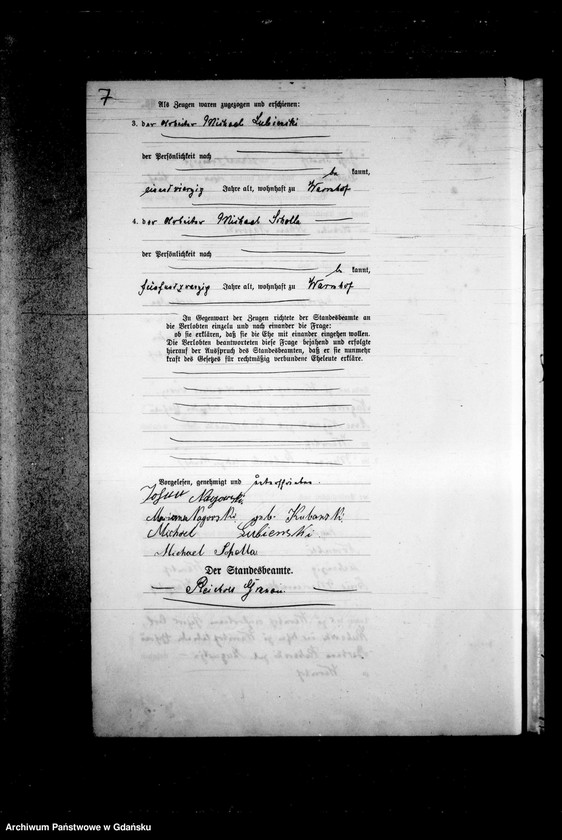 7
Als Zeugen waren zugezogen und erschienen:
3. der Arbeiter Michael Lubienski
der Persönlichkeit nach
be kannt,
einundvierzig Jahre alt, wohnhaft zu Warmhof
4. der Arbeiter Michael Scholla
der Persönlichkeit nach
be kannt,
fünfundzwanzig Jahre alt, wohnhaft zu Warmhof
In Gegenwart der Zeugen richtete der Standesbeamte an
die Verlobten einzeln und nach einander die Frage:
ob sie erklären, daß sie die Ehe mit einander eingehen wollen.
Die Verlobten beantworteten diese Frage bejahend und erfolgte
hierauf der Ausspruch des Standesbeamten, daß er sie nunmehr
kraft des Gesetzes für rechtmäßig verbundene Eheleute erkläre.
Vorgelesen, genehmigt und unterschrieben.
Johann Nagorski
Marianna Nagorski geb. Kubanski
Michael Lubienski
Michael Scholla
Der Standesbeamte.
Archiwum Państwowe w Gdańsku